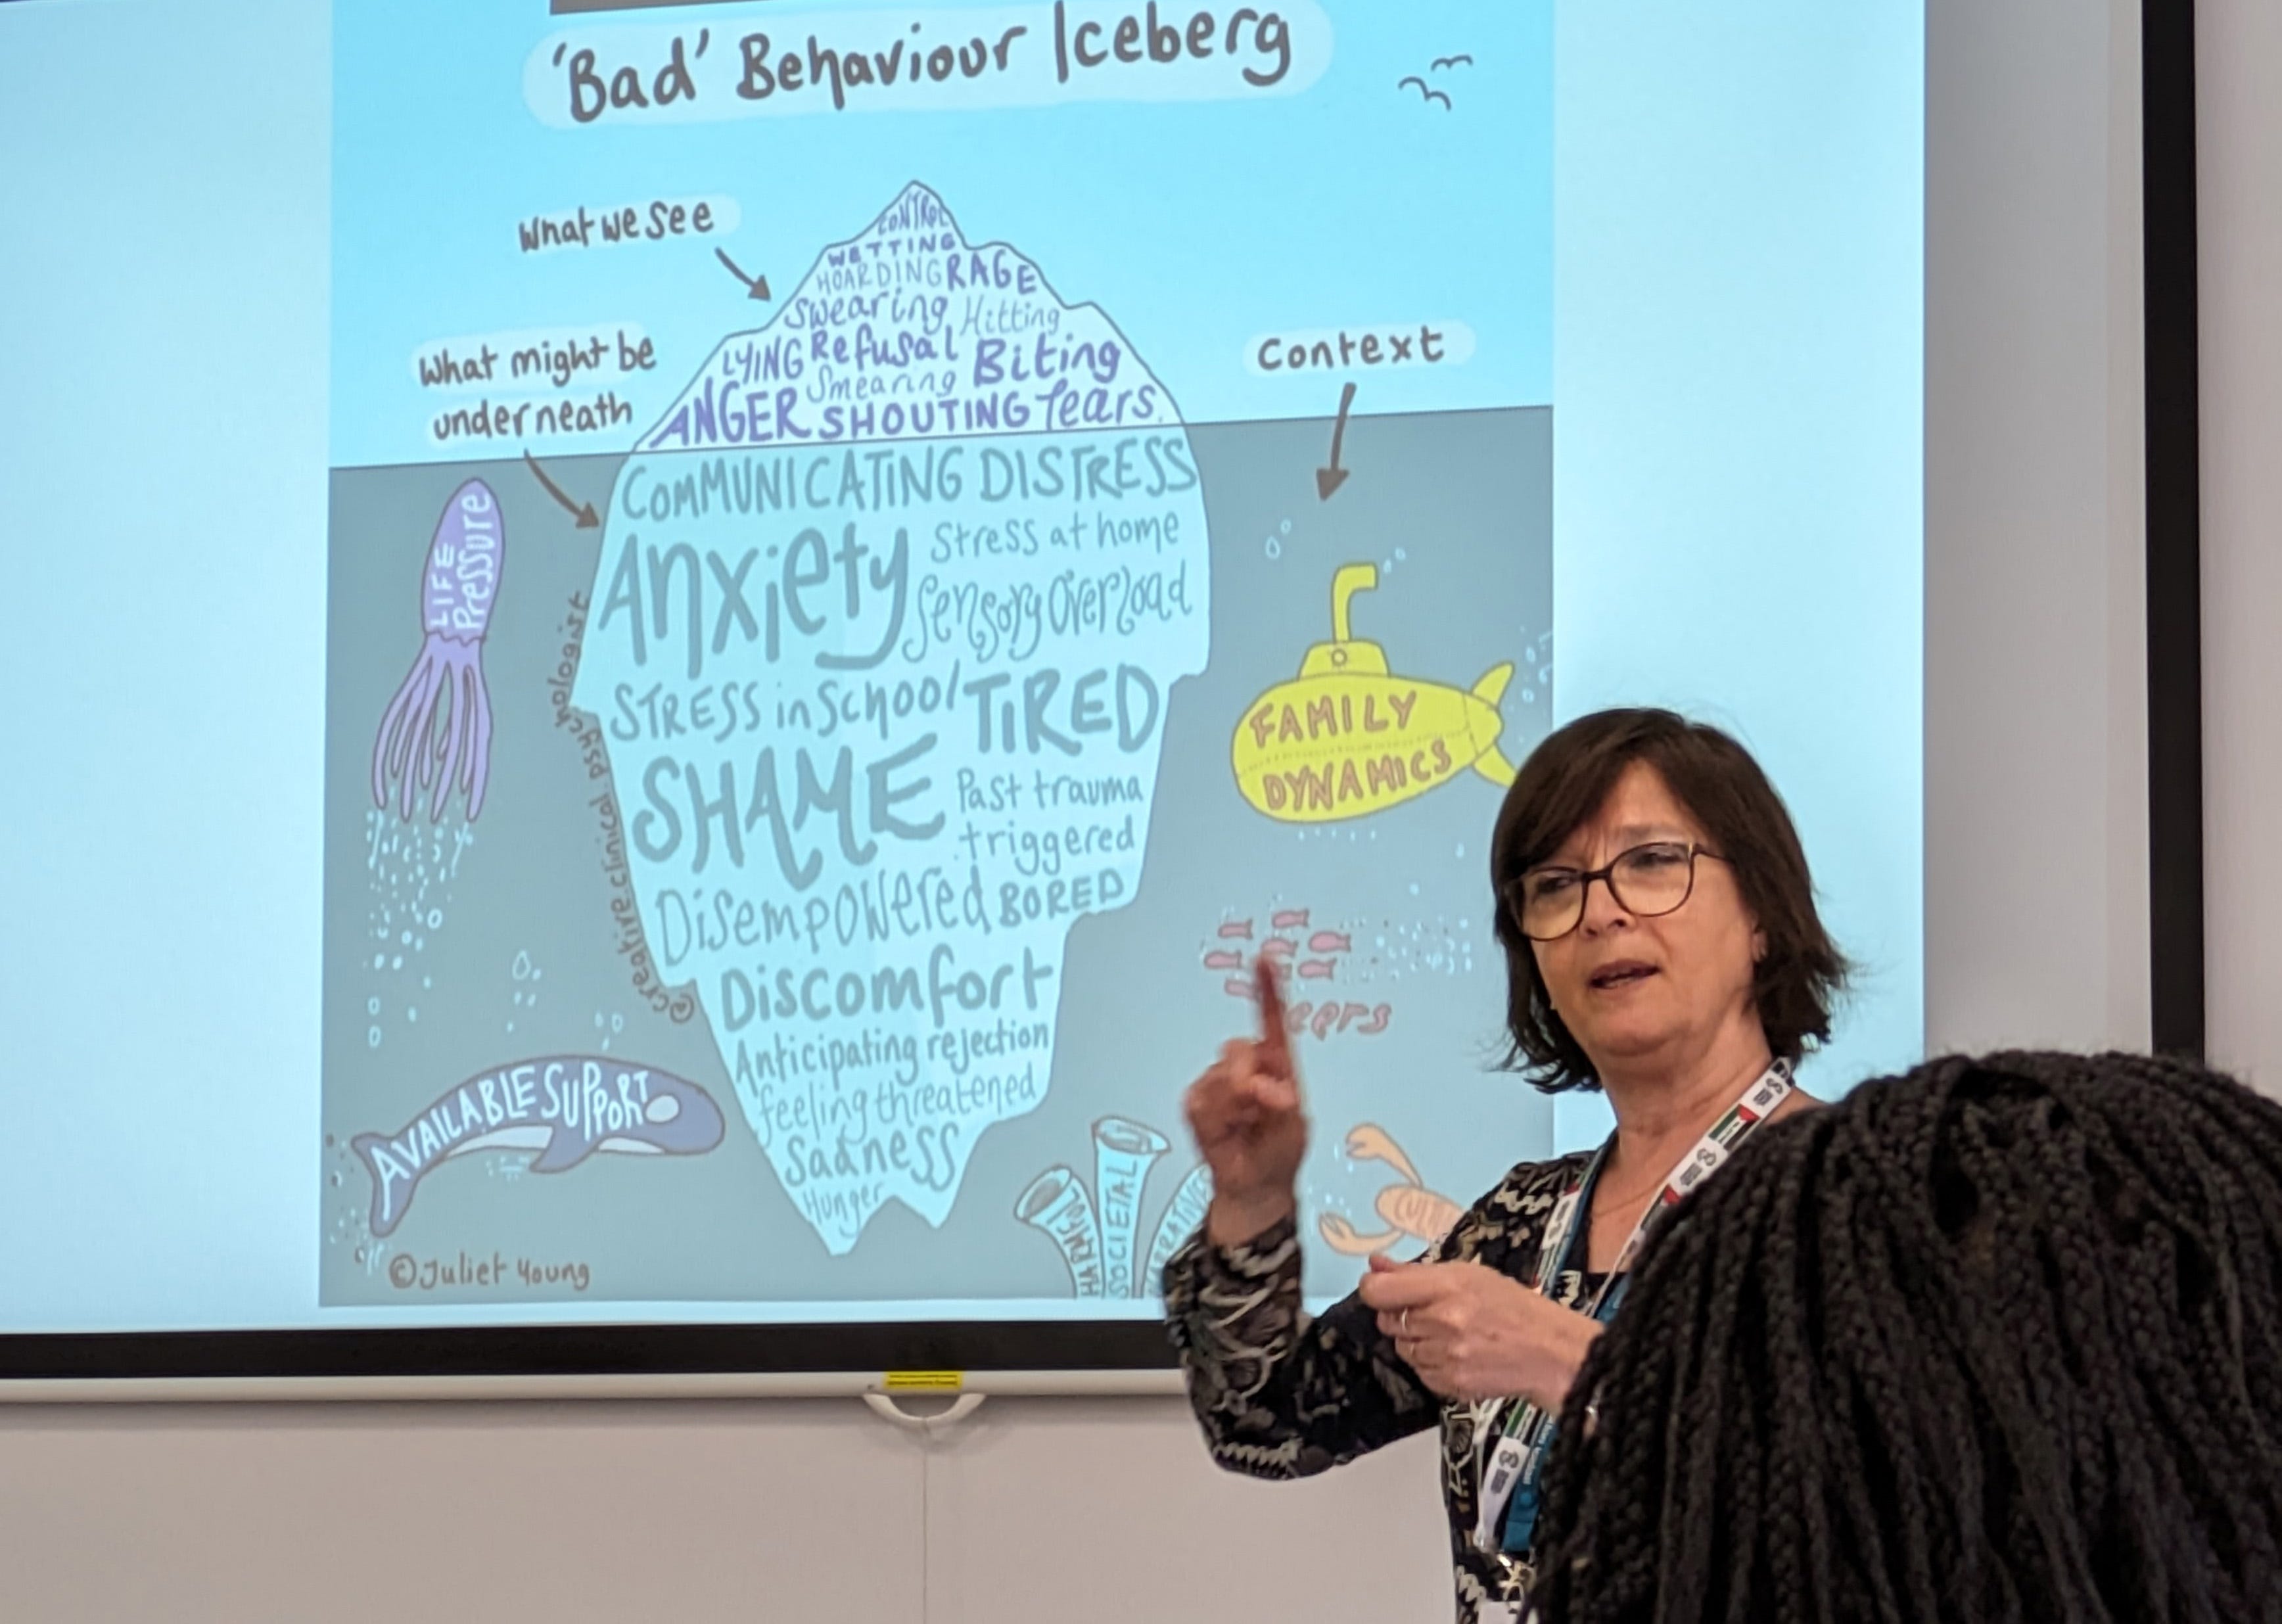 'Bad' Behaviour Iceberg
What we see
CONTROL
WETTING
HOARDING RAGE
Swearing Hitting
LYING Refusal Biting
Smearing
ANGER SHOUTING Tears
What might be
underneath
Context
COMMUNICATING DISTRESS
Anxiety Stress at home
Sensory Overload
STRESS in School TIRED
SHAME Past trauma
triggered
Disempowered BORED
Discomfort
Anticipating rejection
feeling threatened
Sadness
Hunger
LIFE
Pressure
@creative.clinical.psychologist
FAMILY
DYNAMICS
AVAILABLE SUPPORT
HARMFUL
SOCIETAL
©Juliet Young